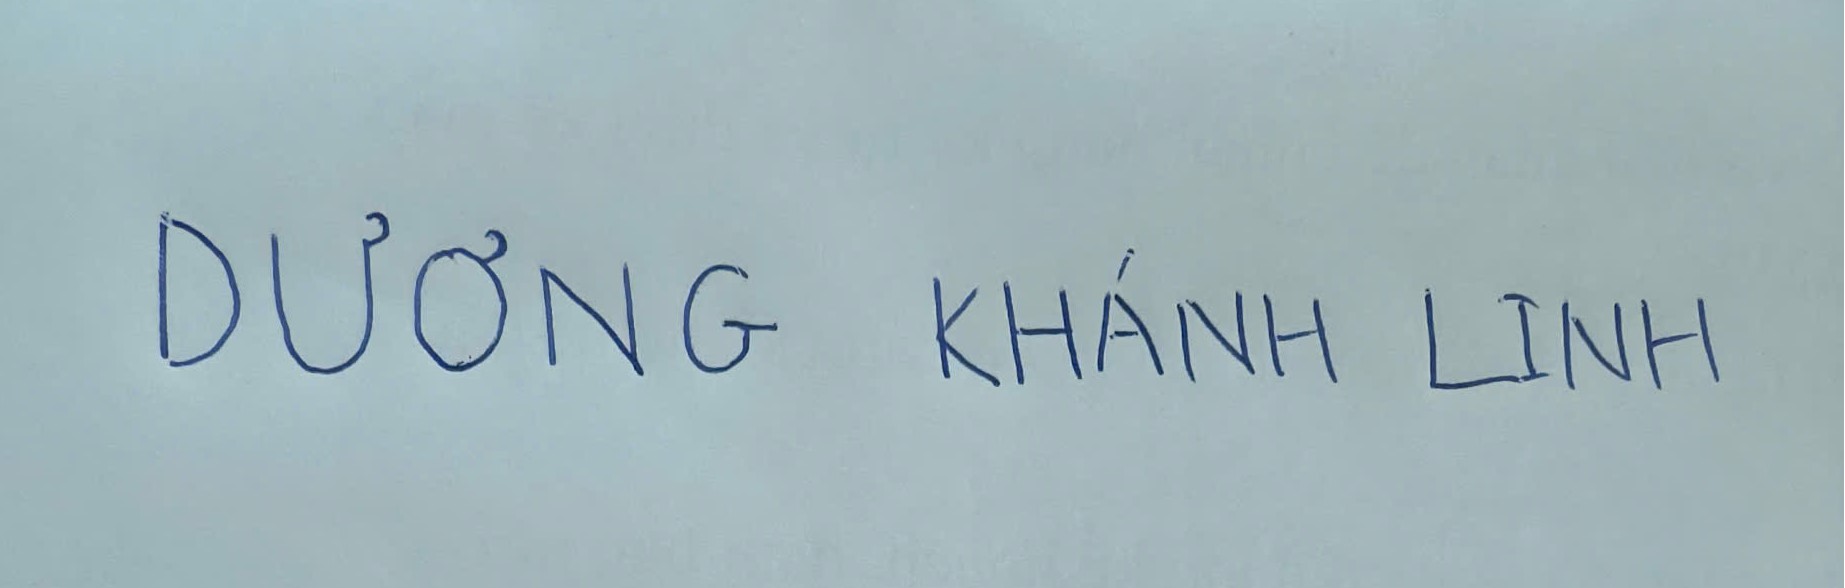 DƯƠNG KHÁNH LINH